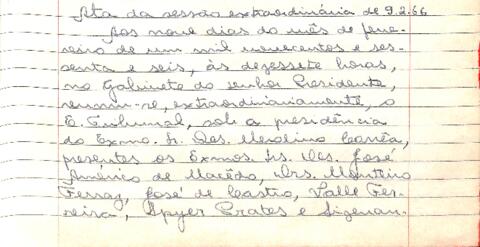 Ata da sessão extraordinária de 9.2.66
Aos nove dias do mês de feve-
reiro de um mil novecentos e ses-
senta e seis, às dezessete horas,
no Gabinete do senhor Presidente,
reuniu-se, extraordinariamente, o
E. Tribunal, sob a presidência
do Exmo. Sr. Des. Merolino Corrêa,
presentes os Exmos. Srs. Des. José
Américo de Macêdo, Drs. Monteiro
Ferraz, José de Castro, Valle Fer-
reira, Spyer Prates e